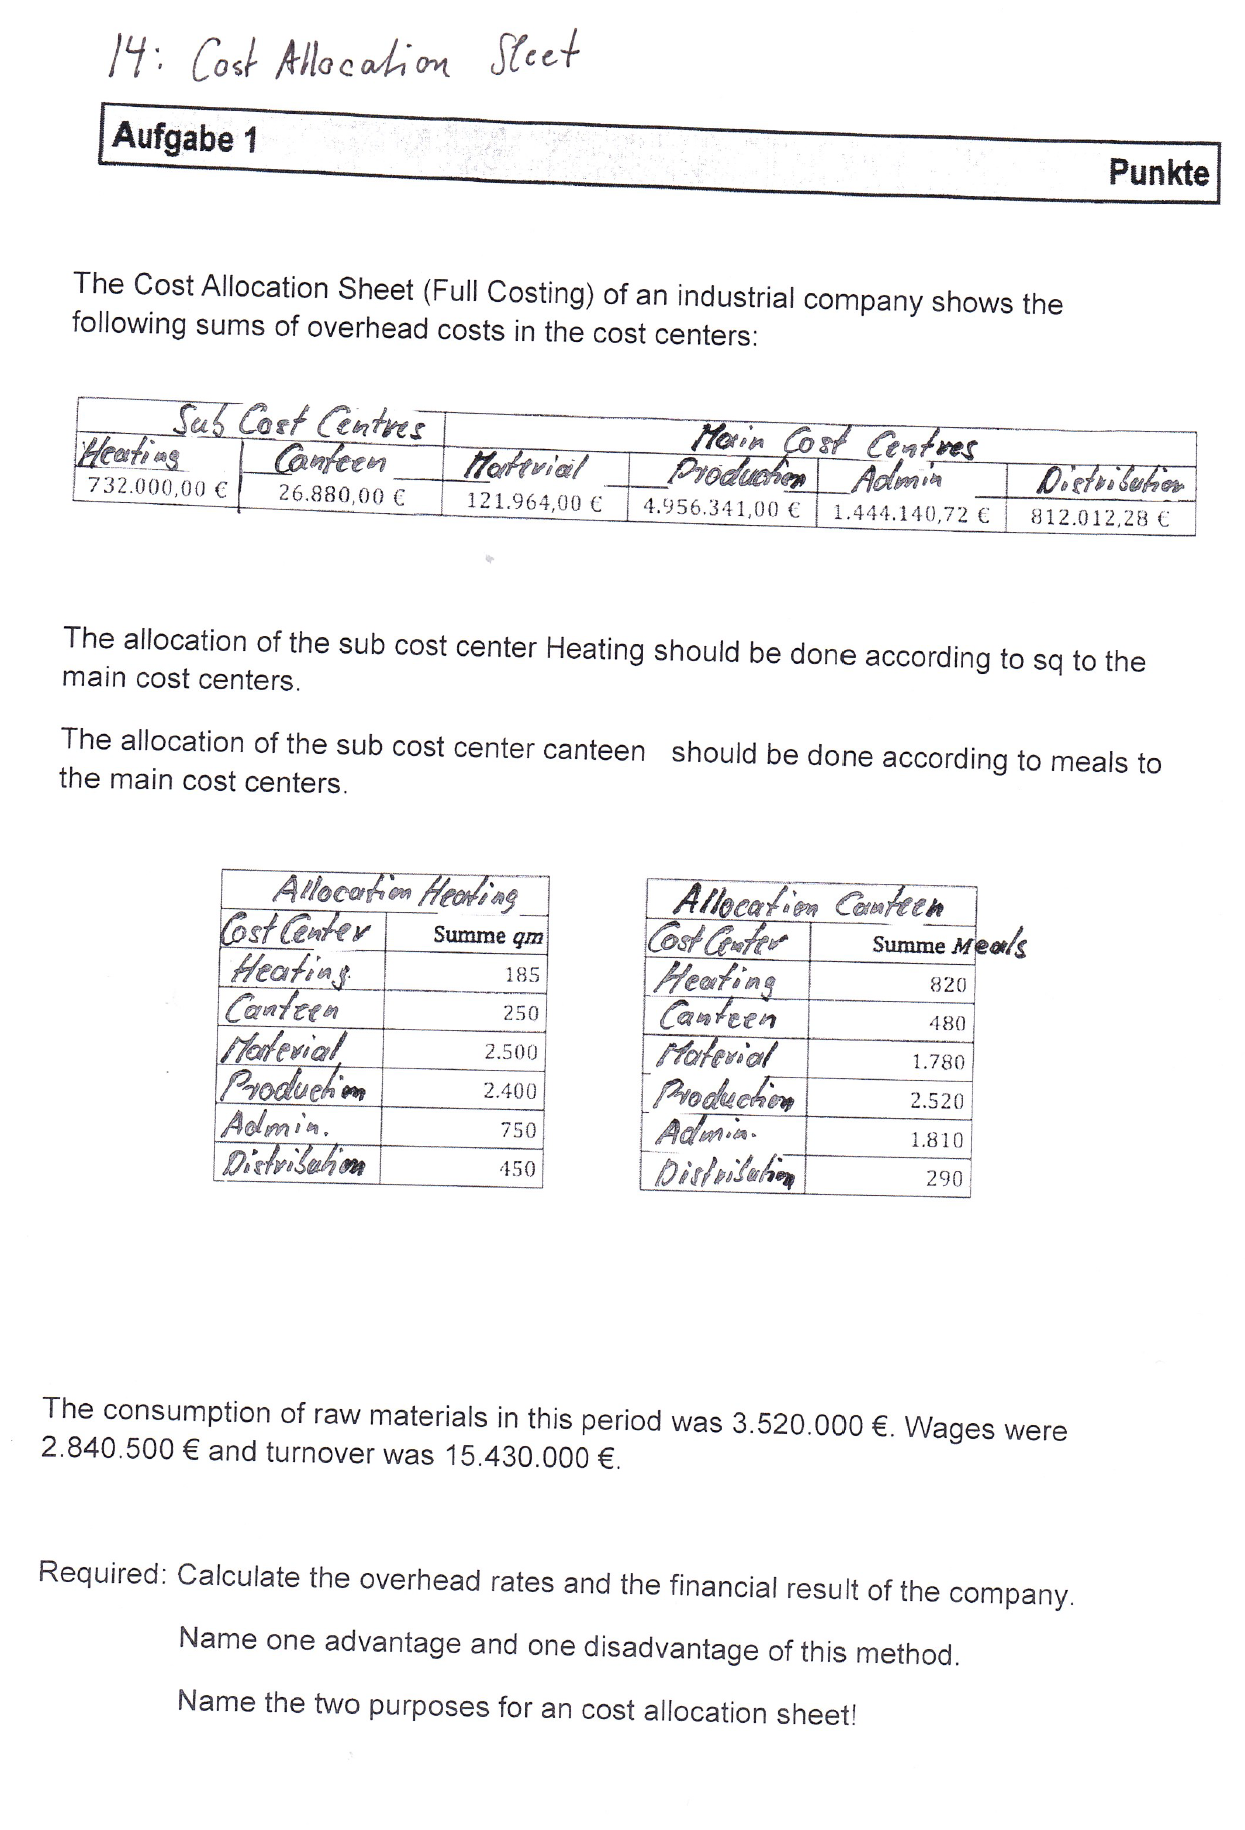 14: Cost Allocation Sleet
Aufgabe 1
Punkte
The Cost Allocation Sheet (Full Costing) of an industrial company shows the
following sums of overhead costs in the cost centers:
Sub Cost Centres Main Cost Centres
Heating Canteen Material Production Admin Distribution
732.000,00 € 26.880,00 € 121.964,00 € 4.956.341,00 € 1.444.140,72 € 812.012,28 €
The allocation of the sub cost center Heating should be done according to sq to the
main cost centers.
The allocation of the sub cost center canteen should be done according to meals to
the main cost centers.
Allocation Heating
Cost Center Summe qm
Heating 185
Canteen 250
Material 2.500
Production 2.400
Admin. 750
Distribution 450
Allocation Canteen
Cost Center Summe Meals
Heating 820
Canteen 480
Material 1.780
Production 2.520
Admin. 1.810
Distribution 290
The consumption of raw materials in this period was 3.520.000 €. Wages were
2.840.500 € and turnover was 15.430.000 €.
Required: Calculate the overhead rates and the financial result of the company.
Name one advantage and one disadvantage of this method.
Name the two purposes for an cost allocation sheet!